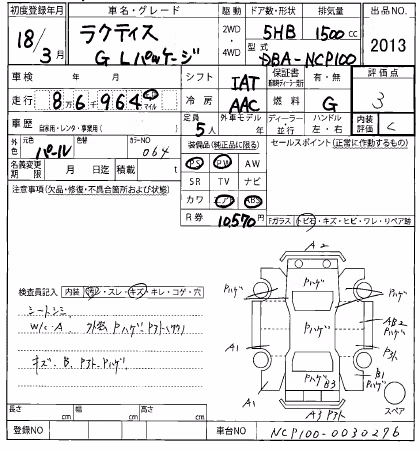 初度登録年月 車名・グレード 駆動 ドア数・形状 排気量 出品NO.
18/3月 ラクティス G Lパッケージ 2WD・4WD 5HB 1500cc 2013
型式 DBA-NCP100
車検 年 月 シフト IAT 保証書 有・無 評価点 3
走行 8万6千964 km マイル 冷房 AAC 燃料 G
車歴 自家用・レンタ・事業用( ) 定員 5人 外車モデル 年 ディーラー・並行 ハンドル 左・右 内装評価 C
外色 元色 パール 色替 カラーNO 064
装備品(純正品に限る) セールスポイント(正常に作動するもの)
名義変更期限 月 日迄 積載 t
PS PW AW
SR TV ナビ
カワ エアB ABS
注意事項(欠品・修復・不具合箇所および状態)
R券 10,570円
Fガラス トビ石・キズ・ヒビ・ワレ・リペア跡
検査員記入 内装 汚シ・スレ・キズ・キレ・コゲ・穴
シートシミ
W/C・A 外装 Pハゲ
キズ・B
A2
Pハゲ
Pハゲ
Pハゲ
Pハゲ
AB2
Pハゲ
A1
Pハゲ B3
B1
Pハゲ
A1
A3
スペア
長さ cm 幅 cm 高さ cm
登録NO 車台NO NCP100-0030296